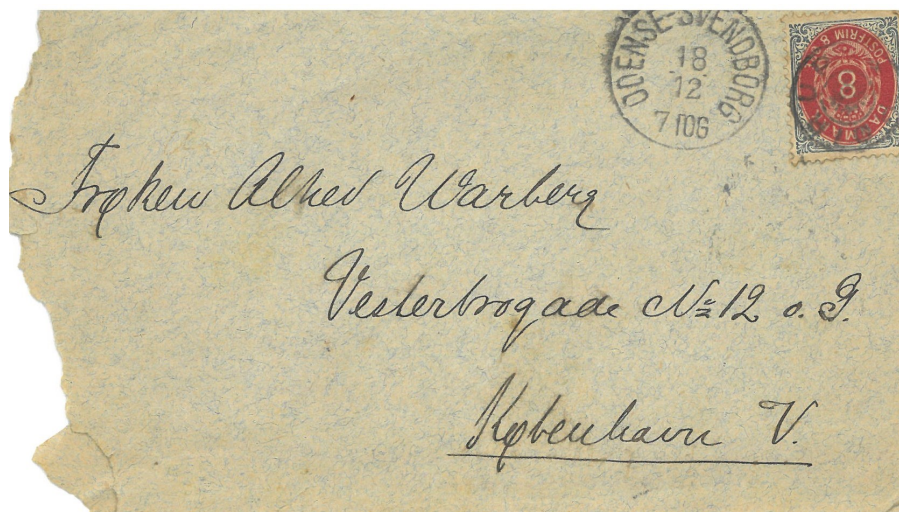 ODENSE-SVENDBORG
18
12
7 TOG
POSTFRIM 8
8
DANMARK
Frøken Alhed Warberg
Vesterbrogade No 12 o. G.
København V.